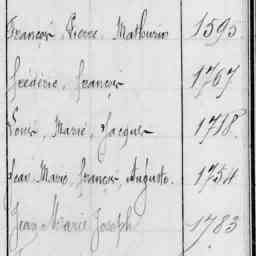 François, Pierre, Mathurin 1595.
Frédéric, François 1767
Louis, Marie, Jacques 1718.
Jean Marie, François, Auguste. 1754
Jean Marie Joseph 1783